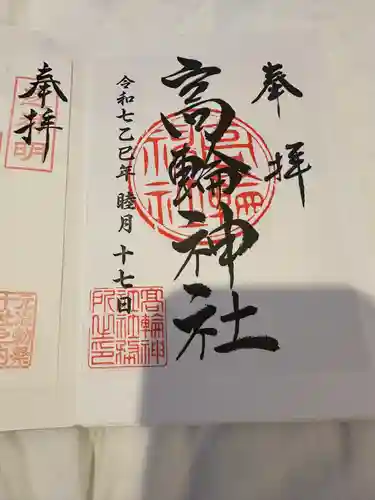 奉拝
高輪神社
令和七乙巳年 睦月 十七日
高輪神社
高輪神
社社務
所之印
奉拝